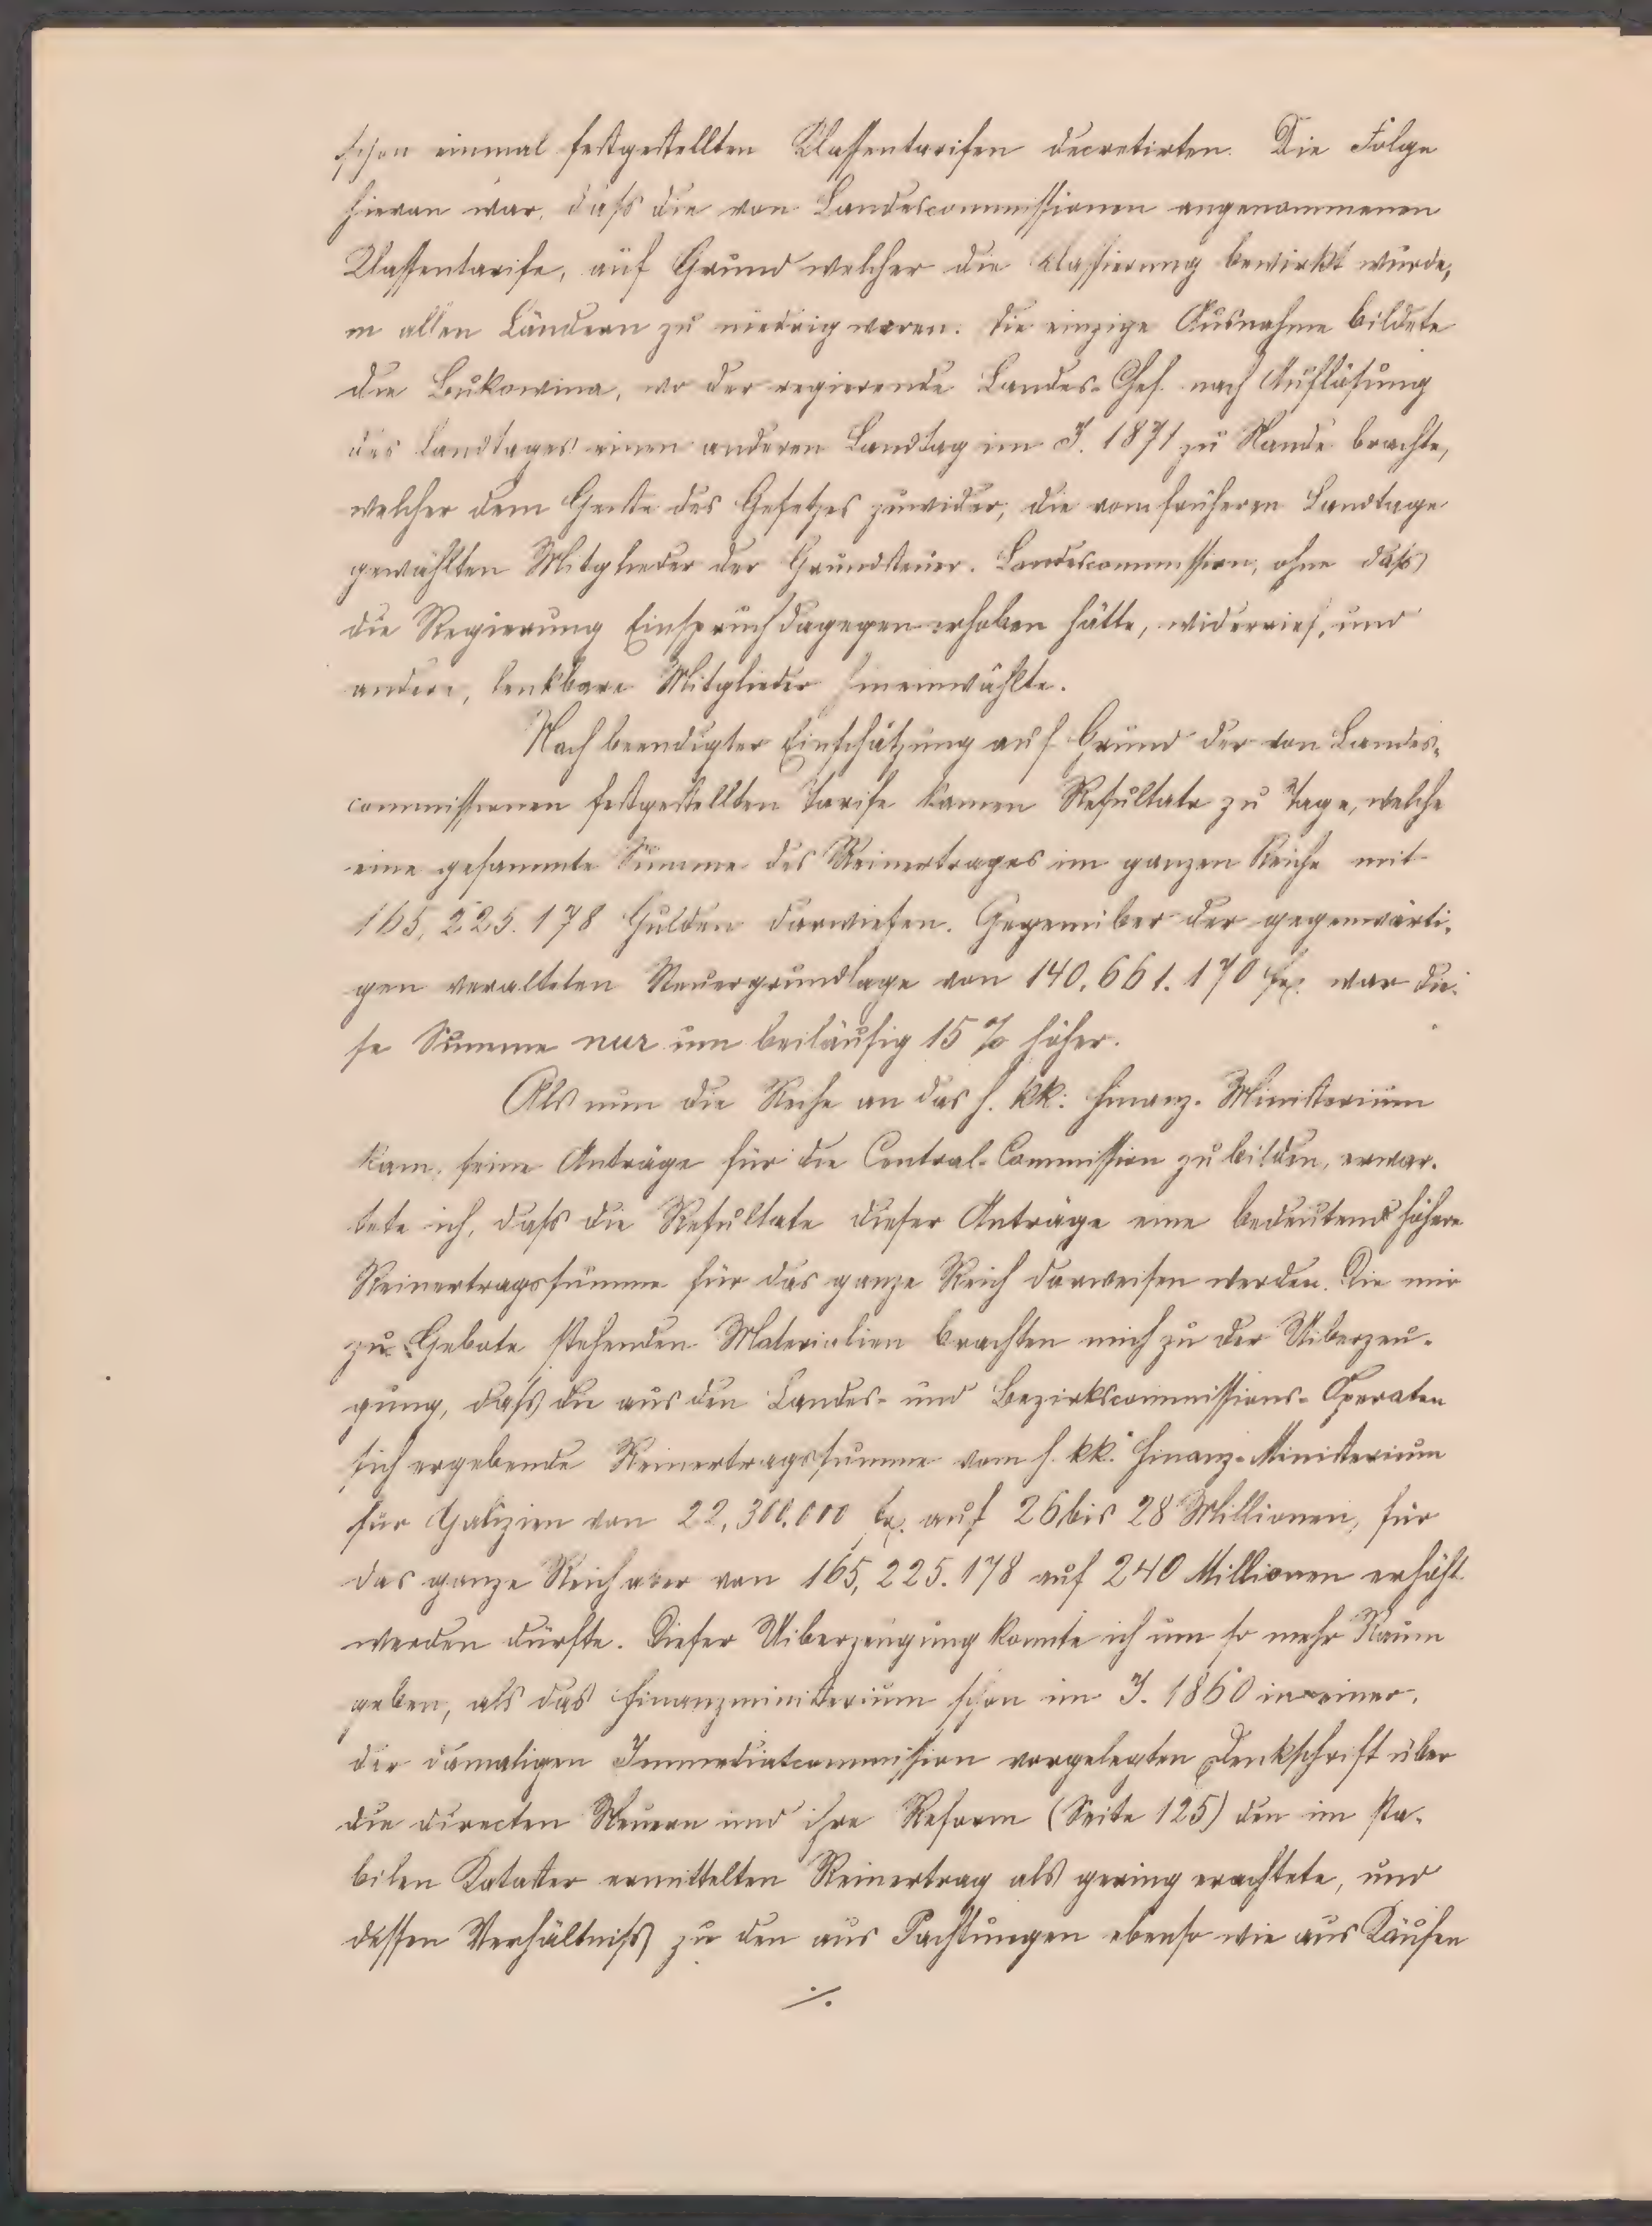 schon einmal festgestellten Classentarifen decretirten. Die Folge
hievon war, daß die von Landescommissionen angenommenen
Classentarife, auf Grund welcher die Classierung bewirkt wurde,
in allen Ländern zu niedrig waren. Die einzige Ausnahme bildete
die Bukowina, wo der regierende Landes-Chef nach Auflösung
des Landtages einen anderen Landtag im J. 1871 zu Stande brachte,
welcher dem Geiste des Gesetzes zuwider, die vom früheren Landtage
gewählten Mitglieder der Grundsteuer-Landescommission, ohne daß
die Regierung Einspruch dagegen erhoben hätte, widerrief, und
andere, lenkbare Mitglieder hineinwählte.
Nach beendigter Einschätzung auf Grund der von Landes-
commissionen festgestellten Tarife kamen Resultate zu Tage, welche
eine gesammte Summe des Reinertrages im ganzen Reiche mit
165,225.178 Gulden darwiesen. Gegenüber der gegenwärti-
gen veralteten Steuergrundlage von 140.661.170 fr. war die-
se Summe nur um beiläufig 15 % höher.
Als nun die Reihe an das h. kk. Finanz-Ministerium
kam, seine Anträge für die Central-Commission zu bilden, erwar-
tete ich, daß die Resultate dieser Anträge eine bedeutend höhere
Reinertragssumme für das ganze Reich darweisen werden. Die mir
zu Gebote stehenden Materialien brachten mich zu der Uiberzeu-
gung, daß die aus den Landes- und Bezirkscommissions-Operaten
sich ergebende Reinertragssumme vom h. kk. Finanz-Ministerium
für Galizien von 22,300.000 fr. auf 26 bis 28 Millionen, für
das ganze Reich aber von 165,225.178 auf 240 Millionen erhöht
werden dürfte. Dieser Uiberzeugung konnte ich um so mehr Raum
geben, als das Finanzministerium schon im J. 1860 in einer,
der damaligen Immediatcommission vorgelegten Denkschrift über
die directen Steuern und ihre Reform (Seite 125) den im sta-
bilen Kataster ermittelten Reinertrag als gering erachtete, und
dessen Verhältniß zu den aus Pachtungen ebenso wie aus Käufen
./.